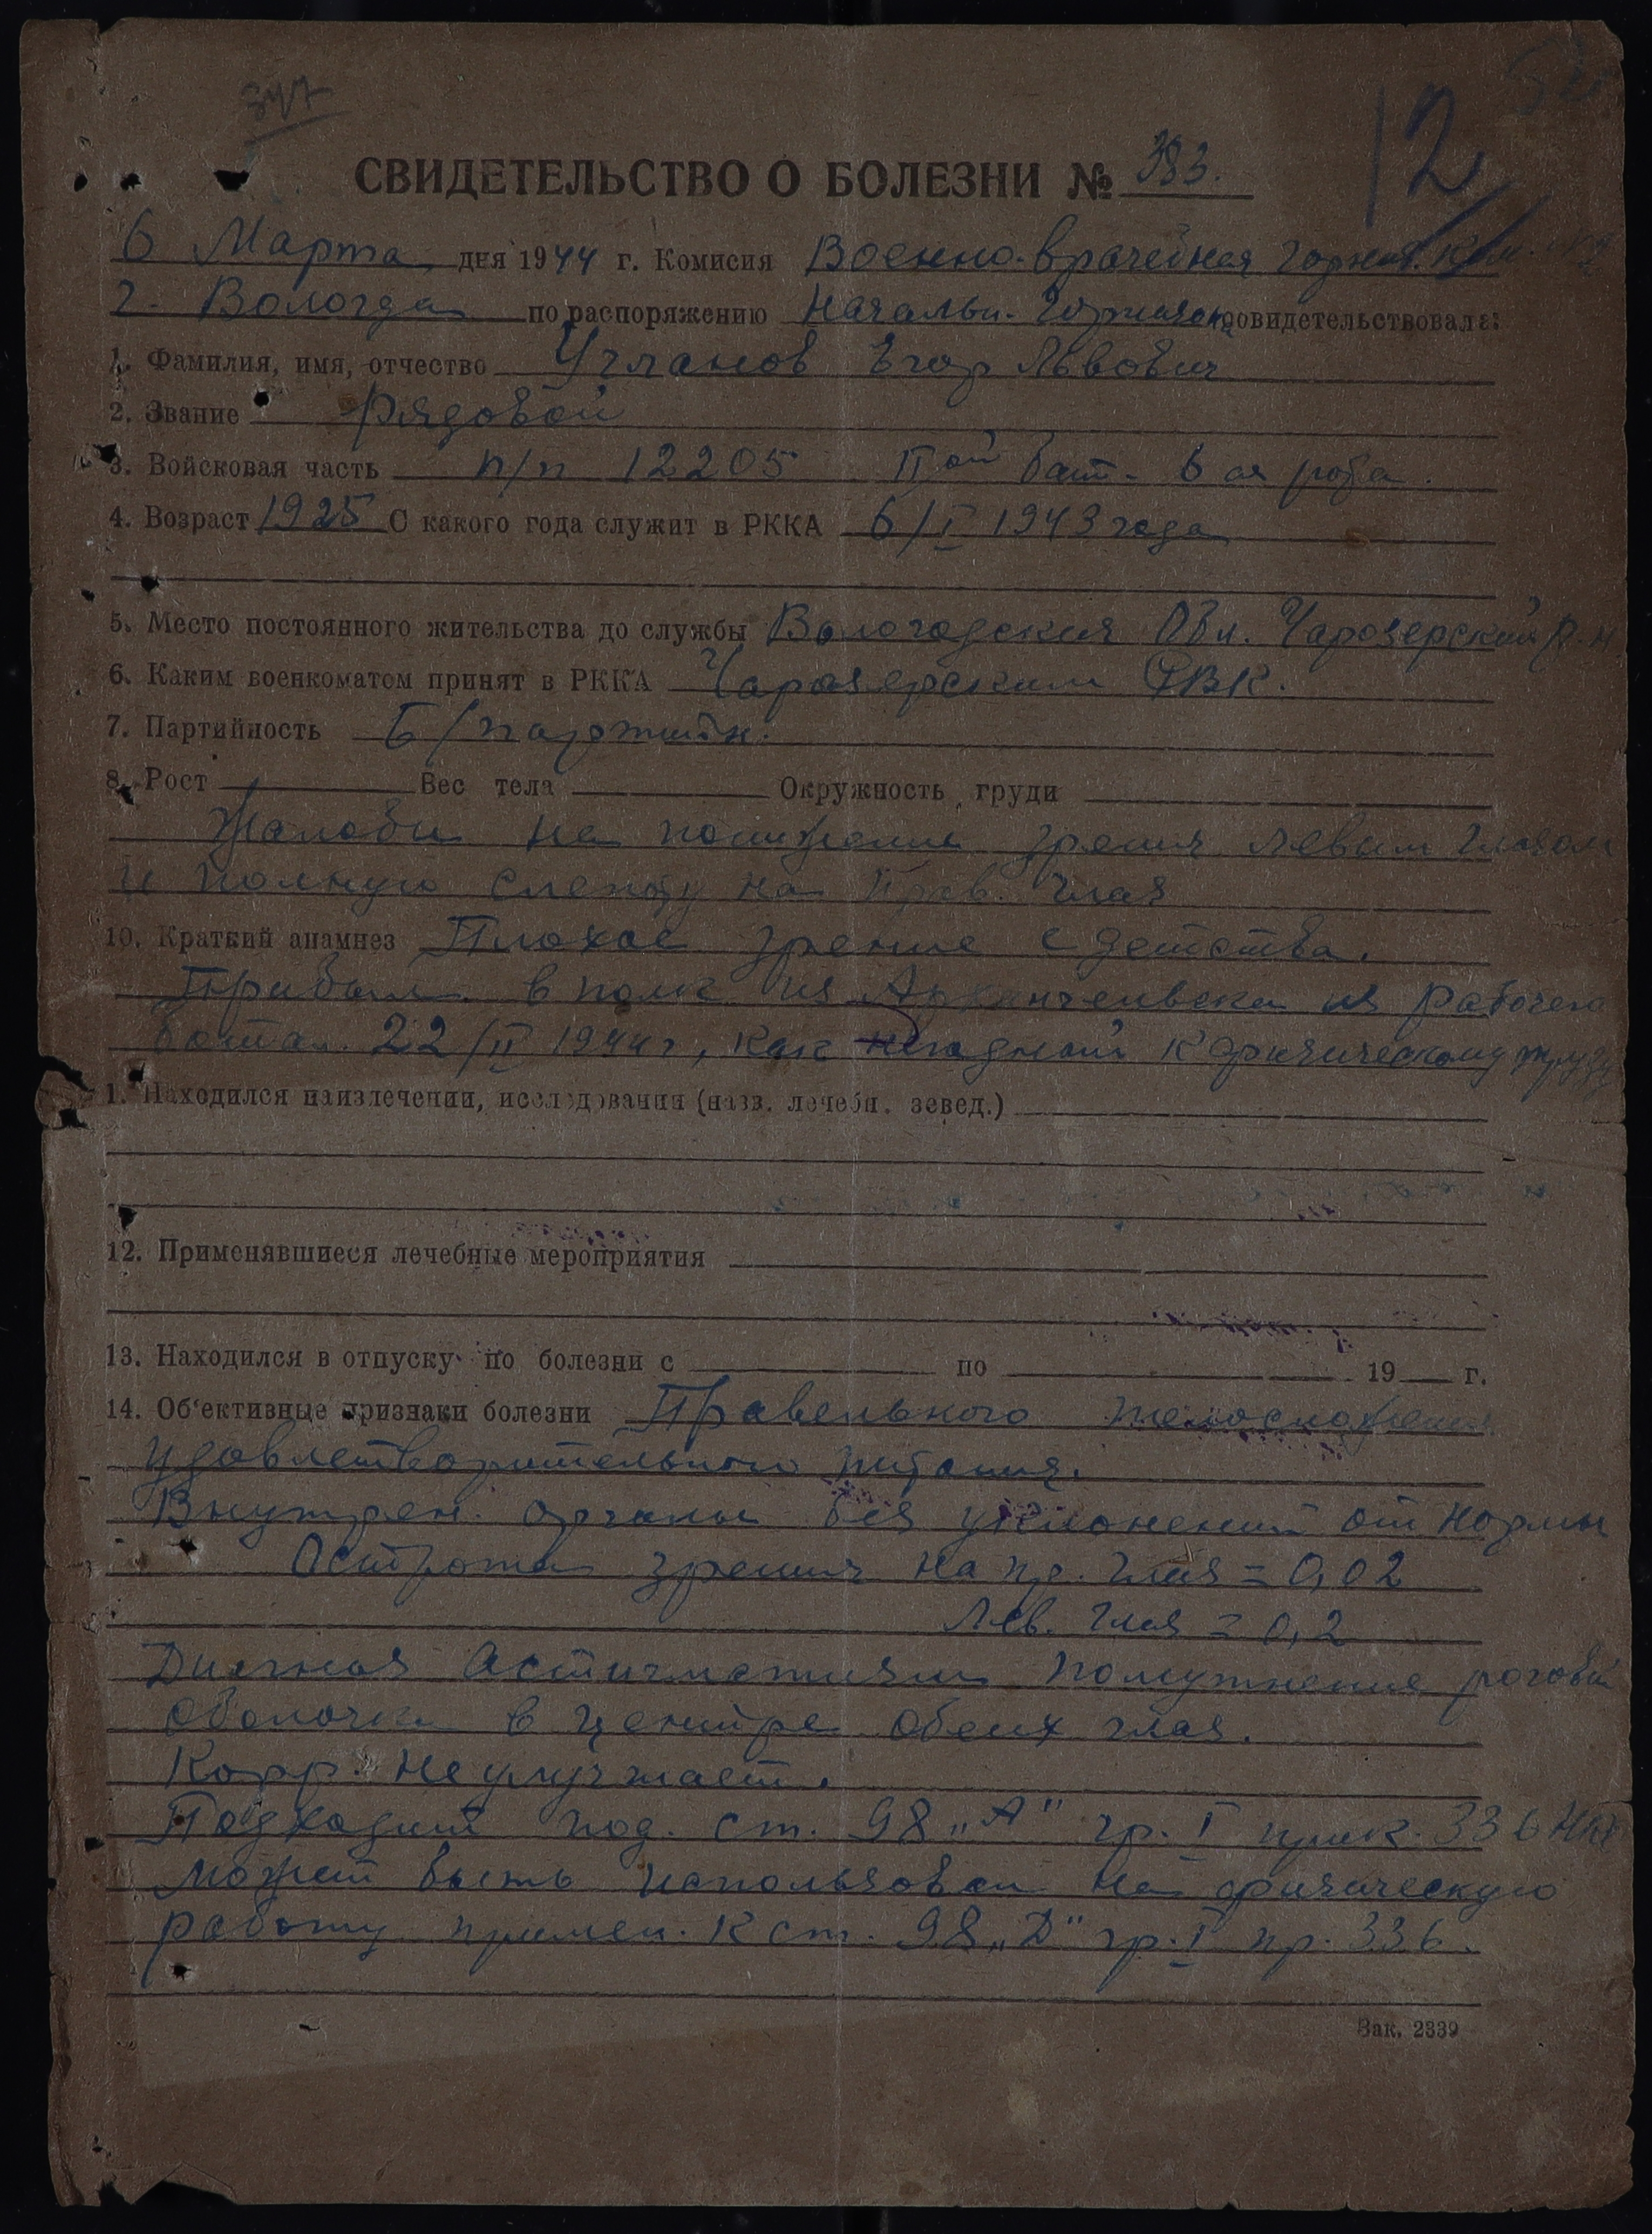 347
12
СВИДЕТЕЛЬСТВО О БОЛЕЗНИ № 383.
6 Марта дня 1944 г. Комисия Военно-врачебная гарниз.
г. Вологда по распоряжению Начальн. Гарнизона освидетельствовала:
1. Фамилия, имя, отчество Угланов Егор Львович
2. Звание Рядовой
3. Войсковая часть п/п 12205 II ой бат. 6 ая рота.
4. Возраст 1925 С какого года служит в РККА 6/I 1943 года
5. Место постоянного жительства до службы Вологодская Обл. Чарозерский р-н
6. Каким военкоматом принят в РККА Чарозерским РВК.
7. Партийность Б/партийн.
8. Рост Вес тела Окружность груди
Жалобы на понижение зрения левым глазом
и полную слепоту на прав. глаз
10. Краткий анамнез Плохое зрение с детства.
Прибыл в полк из Архангельска из рабочего
батал. 22/II 1944 г, как негодный к физическому труду
1. Находился наизлечении, исследования (назв. лечебн. зевед.)
12. Применявшиеся лечебные мероприятия
13. Находился в отпуску по болезни с по 19 г.
14. Об'ективные признаки болезни Правельного телосложения
удовлетворительного питания.
Внутрен. органы без уклонений от нормы
Острота зрения на пр. глаз = 0,02
Лев. глаз = 0,2
астигматизм помутнение роговой
оболочки в центре обеих глаз.
Корр. не улучшает.
Подходит под. ст. 98 „А" гр. I прик. 336 НКО
Может быть использован на физическую
работу примен. к ст. 98 „Д" гр. I пр. 336.
Зак. 2339